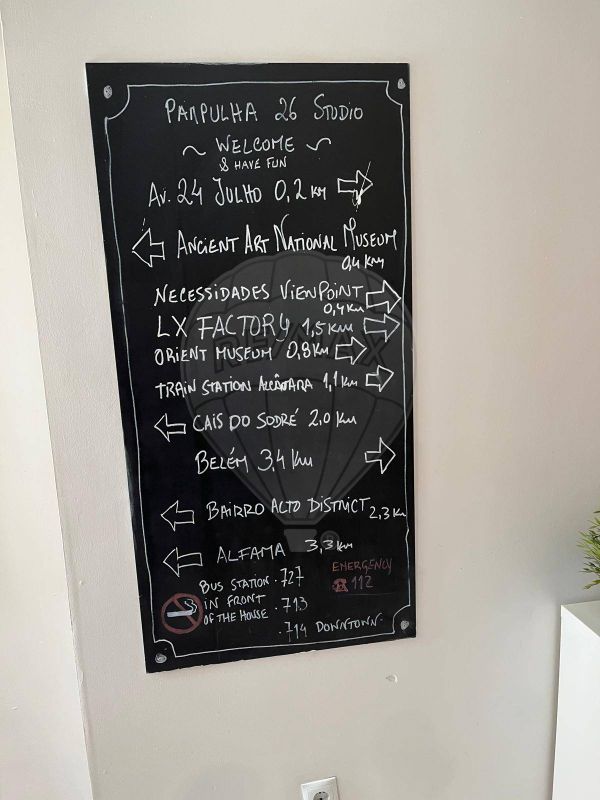 PAMPULHA 26 STUDIO
~ WELCOME ~
& HAVE FUN
AV. 24 JULHO 0,2 KM
ANCIENT ART NATIONAL MUSEUM
0,4 KM
NECESSIDADES VIEWPOINT
0,4 KM
LX FACTORY 1,5 KM
ORIENT MUSEUM 0,8 KM
TRAIN STATION ALCÂNTARA 1,1 KM
CAIS DO SODRÉ 2,0 KM
BELÉM 3,4 KM
BAIRRO ALTO DISTRICT 2,3 KM
ALFAMA 3,3 KM
EMERGENCY
☎ 112
BUS STATION · 727
IN FRONT
OF THE HOUSE · 713
· 714 DOWNTOWN ·
RE/MAX